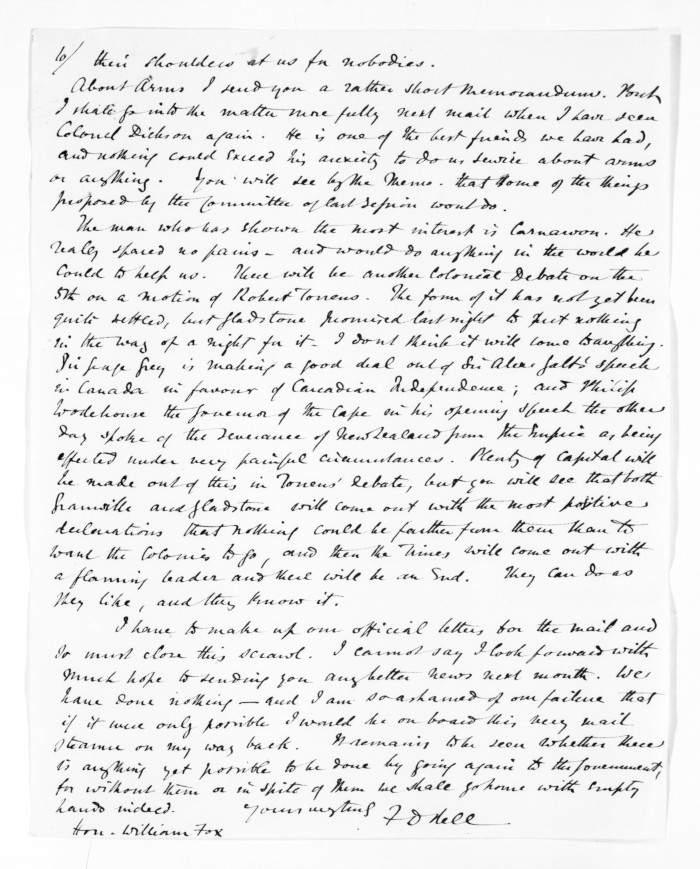 10/ their shoulders at us for nobodies.
About Arms I send you a rather short Memorandum. But
I shall go into the matter more fully next mail when I have seen
Colonel Dickson again. He is one of the best friends we have had,
and nothing could exceed his anxiety to do us service about arms
or anything. You will see by the Memo. that some of the things
proposed by the Committee of last Session wont do.
The man who has shown the most interest is Carnarvon. He
really spared no pains – and would do anything in the world he
could to help us. There will be another Colonial Debate on the
5th on a motion of Robert Torrens. The form of it has not yet been
quite settled, but Gladstone promised last night to put nothing
in the way of a night for it. I dont think it will come to anything.
Sir George Grey is making a good deal out of Sir Alexr Galt's speech
in Canada in favour of Canadian Independence; and Philip
Wodehouse the Governor of the Cape in his opening speech the other
day spoke of the severance of New Zealand from the Empire as being
effected under very painful circumstances. Plenty of Capital will
be made out of this in Torrens' Debate, but you will see that both
Granville and Gladstone will come out with the most positive
declarations that nothing could be farther from them than to
want the Colonies to go, and then the Times will come out with
a flaming leader and there will be an End. They can do as
they like, and they know it.
I have to make up our official letters for the mail and
so must close this scrawl. I cannot say I look forward with
much hope to sending you any better news next month. We
have done nothing – and I am so ashamed of our failure that
if it were only possible I would be on board this very mail
steamer on my way back. It remains to be seen whether there
is anything yet possible to be done by going again to the Government,
for without them or in spite of them we shall go home with empty
hands indeed. Yours very truly F D Bell
Hon. William Fox